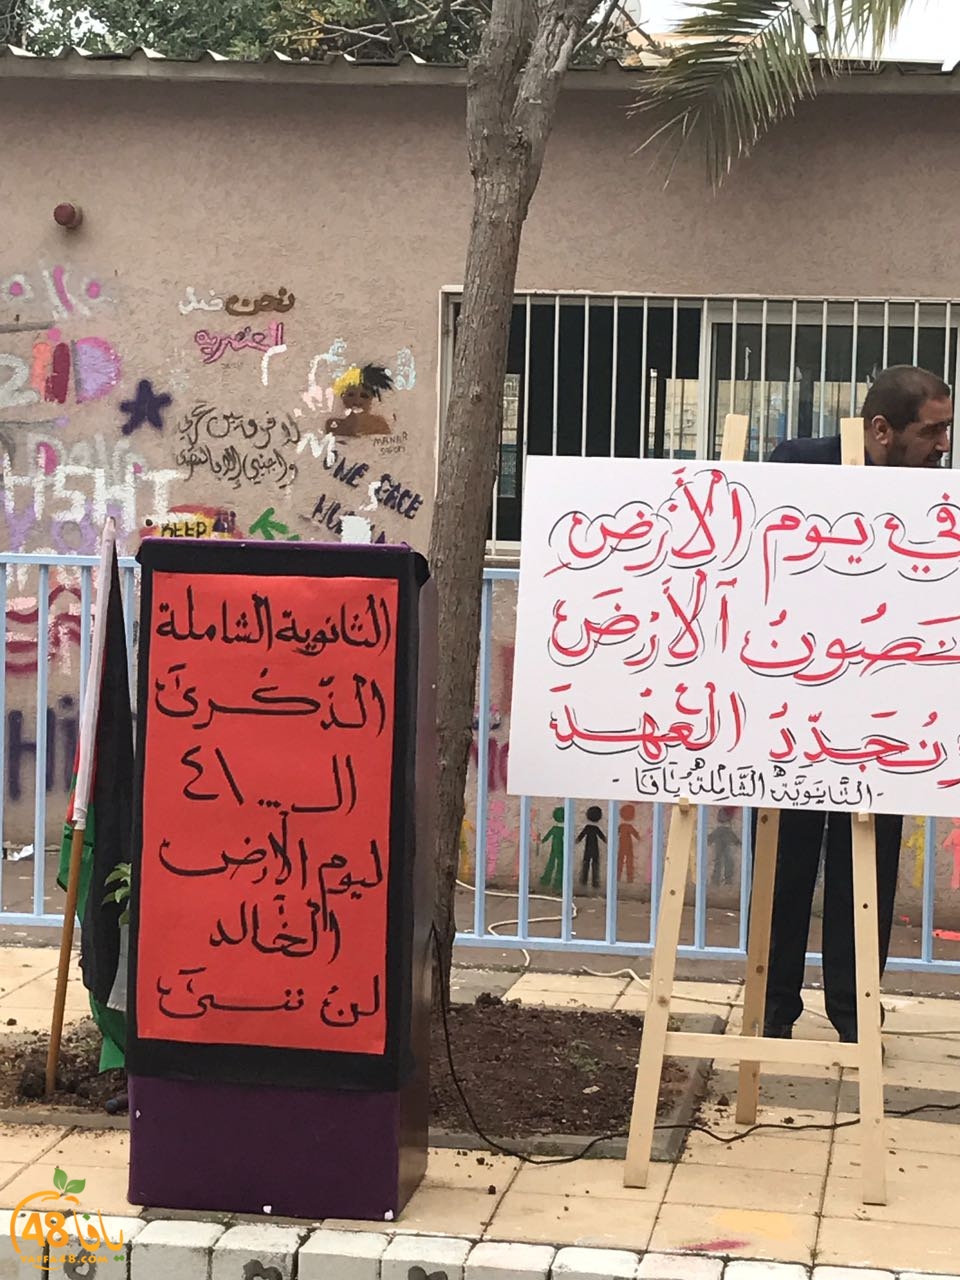 نحن ضد
العنصرية
لا فرق بين عربي
واجنبي إلا بالتقوى
ONE RACE
HUMAN
KEEP
الثانوية الشاملة
الذّكرىَ
الـ... ٤١
ليوم الأرض
الخَالد
لنْ ننسىَ
في يوم الأرض
نَصُونُ آلأرْضَ
ونُجَدّدُ العَهْدَ
- الثَّانَوِيَّة الشَّامِلَة يَافَا -
يافا 48
yaffa48.com